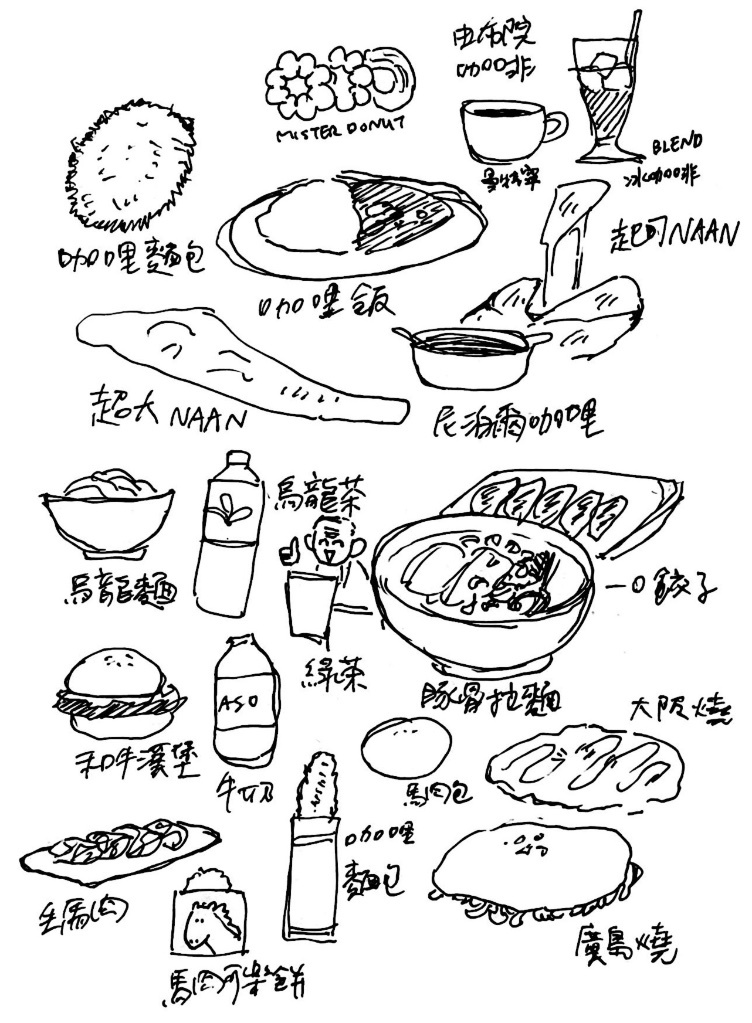 由布院
咖啡
MISTER DONUT
BLEND
曼特寧
冰咖啡
起司NAAN
咖哩麵包
咖哩飯
超大NAAN
尼泊爾咖哩
烏龍茶
烏龍麵
一口餃子
綠茶
豚骨拉麵
ASO
大阪燒
和牛漢堡
牛奶
馬肉包
咖哩
麵包
生馬肉
廣島燒
馬肉可樂餅